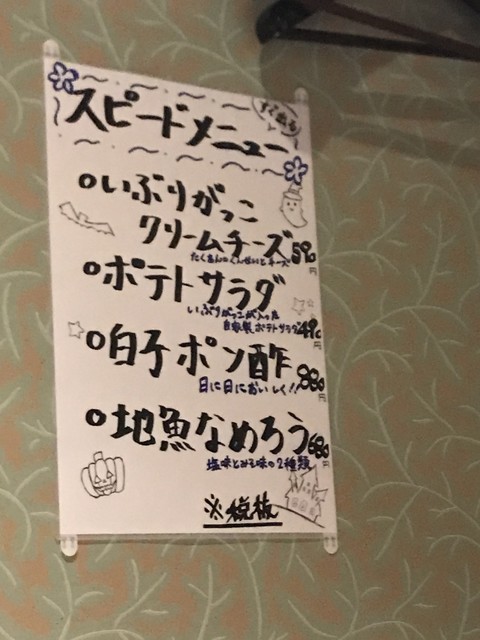 すぐ出る
スピードメニュー
いぶりがっこ
クリームチーズ 590円
たくあんのくんせいとチーズ
ポテトサラダ
いぶりがっこが入った
自家製ポテトサラダ 490円
白子ポン酢 880円
日に日においしく!!
地魚なめろう 680円
塩味とみそ味の2種類
※税抜